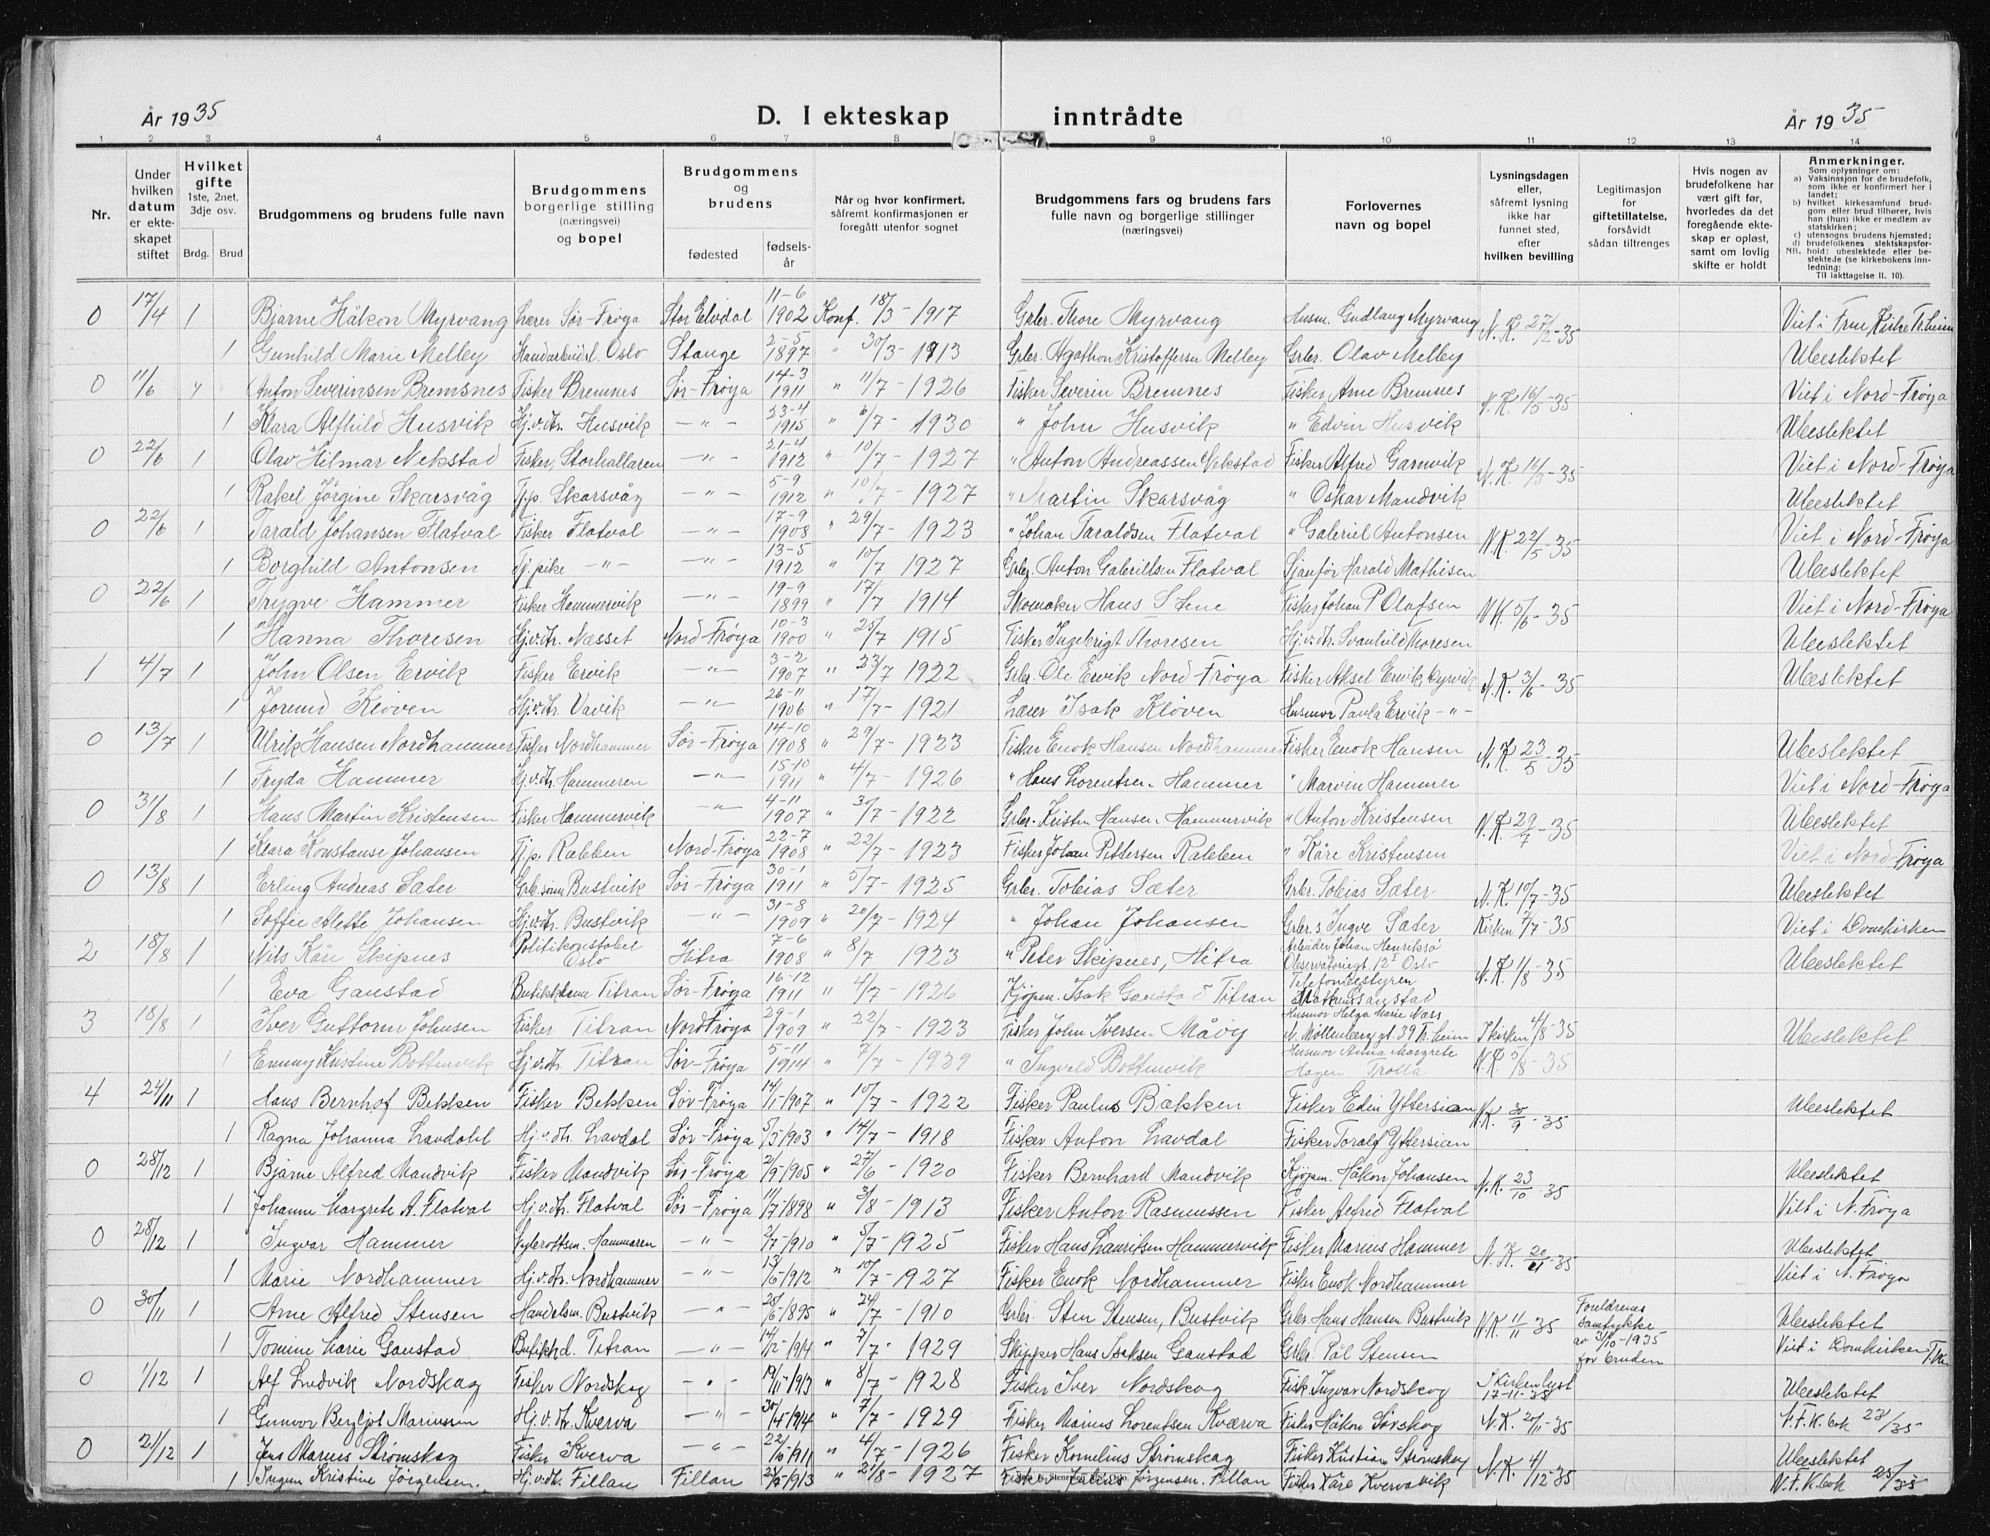 År 1935 D. I ekteskap inntrådte År 1935
1 2 3 4 5 6 7 8 9 10 11 12 13 14
Nr.
Under hvilken datum er ekte-skapet stiftet
Hvilket gifte 1ste, 2net, 3dje osv.
Brdg. Brud
Brudgommens og brudens fulle navn
Brudgommens borgerlige stilling (næringsvei) og bopel
Brudgommens og brudens
fødested fødsels-år
Når og hvor konfirmert, såfremt konfirmasjonen er foregått utenfor sognet
Brudgommens fars og brudens fars fulle navn og borgerlige stillinger (næringsvei)
Forlovernes navn og bopel
Lysningsdagen eller, såfremt lysning ikke har funnet sted, efter hvilken bevilling
Legitimasjon for giftetillatelse, forsåvidt sådan tiltrenges
Hvis nogen av brudefolkene har vært gift før, hvorledes da det foregående ekte-skap er opløst, samt om lovlig skifte er holdt
Anmerkninger.
Som oplysninger om:
a) Vaksinasjon for de brudefolk, som ikke er konfirmert her i landet;
b) hvilket kirkesamfund brud-gom eller brud tilhører, hvis han (hun) ikke er medlem av statskirken;
c) utensogns brudens hjemsted;
d) brudefolkenes slektskapsfor-hold: ubeslektede eller be-slektede (se kirkebokens inn-ledning:
NB. Til iakttagelse II. 10).
0 17/4 1 Bjarne Håkon Myrvang Lærer Sør-Frøya Stor Elvdal 11-6 1902 Konf. 18/3-1917 Grbr. Thore Myrvang Husm. Gudlaug Myrvang N.K. 27/2-35 Viet i Frue Kirke Tr.heim
1 Gunhild Marie Melley Handarbeidsl. Oslo Stange 2-5 1897 " 30/3-1913 Grbr. Agathon Kristoffersen Melley Grbr. Olav Melley Ubeslektet
0 11/6 1 Anton Severinsen Bremsnes Fisker Bremnes Sør-Frøya 14-3 1911 " 11/7-1926 Fisker Severin Bremnes Fisker Arne Bremnes N.K. 16/5-35 Viet i Nord-Frøya
1 Klara Alfhild Husvik Hj.v.dtr. Husvik -"- 23-4 1915 " 6/7-1930 " John Husvik " Edvin Husvik Ubeslektet
0 22/6 1 Olav Hilmar Nekstad Fisker, Storhallaren -"- 21-4 1912 " 10/7-1927 " Anton Andreassen Nekstad Fisker Alfred Garnvik N.K. 16/5-35 Viet i Nord-Frøya
1 Rakel Jørgine Skarsvåg Tj.p. Skarsvåg -"- 5-9 1912 " 10/7-1927 " Martin Skarsvåg " Oskar Mandvik Ubeslektet
0 22/6 1 Tarald Johansen Flatval Fisker Flatval -"- 17-9 1908 " 29/7-1923 " Johan Taraldsen Flatval " Gabriel Antonsen N.K. 22/5-35 Viet i Nord-Frøya
1 Borghild Antonsen Tj.pike -"- -"- 13-5 1912 " 10/7 1927 Grbr. Anton Gabrillsen Flatval Sjanfør Harald Mathisen Ubeslektet
0 22/6 1 Trygve Hammer Fisker Hammervik -"- 19-9 1899 " 17/7 1914 Skomaker Hans Stene Fisker Johan P Olafsen N.K. 5/6-35 Viet i Nord-Frøya
1 Hanna Thoresen Hj.v.dtr. Næsset Nord-Frøya 10-3 1900 " 25/7 1915 Fisker Ingebrigt Thoresen Hj.v.dtr. Svanhild Thoresen Ubeslektet
1 4/7 1 John Olsen Ervik Fisker Ervik -"- 3-2 1907 " 23/7 1922 Grbr. Ole Ervik Nord-Frøya Fisker Aksel Ervik N.K. 3/6-35 Ubeslektet
1 Jorund Kløven Hj.v.dtr. Vavik -"- 26-11 1906 " 17/7-1921 Lærer Isak Kløven Husmor Paula Ervik -"-
0 13/7 1 Ulrik Hansen Nordhammer Fisker Nordhammer Sør-Frøya 14-10 1908 " 29/7-1923 Fisker Enok Hansen Nordhammer Fisker Enok Hansen N.K. 23/5-35 Ubeslektet
1 Fryda Hammer Hj.v.dtr. Hammeren -"- 15-10 1911 " 4/7-1926 " Hans Lorentsen Hammer " Marvin Hammer Viet i Nord-Frøya
0 31/8 1 Hans Martin Kristensen Fisker Hammervik -"- 4-11 1907 " 30/7-1922 Grbr. Kristen Hansen Hammervik " Anton Kristensen N.K. 29/7-35 Ubeslektet
1 Klara Konstanse Johansen Tj.p. Rabben Nord-Frøya 22-7 1908 " 22/7-1923 Fisker Johan Pettersen Rabben " Kåre Kristensen Viet i Nord-Frøya
0 13/8 1 Erling Andreas Sæter Grbr.sønn Bustvik Sør-Frøya 30-1 1911 " 5/7-1925 Grbr. Tobias Sæter Grbr. Tobias Sæter N.K. 10/7-35 Ubeslektet
1 Soffie Alette Johansen Hj.v.dtr. Bustvik -"- 31-8 1909 " 20/7-1924 " Johan Johansen Grbr.s Ingve Sæter Kirken 7/7-35 Viet i Domkirken
2 18/8 1 Nils Kåre Skipnes Politikonstabel Oslo Hitra 7-6 1908 " 8/7 1923 " Peter Skipnes, Hitra Arbeider Johan Henriks. Observatoriegt. 12 I Oslo N.K. 1/8-35 Ubeslektet
1 Eva Gaustad Butikkdame Titran Sør-Frøya 16-12 1911 " 4/7-1926 Kjøpm. Isak Gaustad Titran Telefonbestyren Gaustad
3 18/8 1 Iver Guttorm Johnsen Fisker Titran Nord Frøya 29-1 1909 " 22/7-1923 Fisker John Iversen Måøy Husmor Helga Marie Næss N. Møllenberg gt. 39 Tr.heim I kirken 4/8-35 Ubeslektet
1 Emmy Kristine Bottenvik Hj.v.dtr. Titran Sør-Frøya 5-11 1914 " 7/7-1929 " Ingvald Bottenvik Husmor Anna Margrete Hagen Trolla N.K. 3/8-35
4 24/11 1 Hans Bernhof Bekken Fisker Bekken Sør-Frøya 14/1-1907 " 10/7-1922 Fisker Paulus Bakken Fisker Edin Yttersian N.K. 30/9-35 Ubeslektet
1 Ragna Johanna Lavdahl Hj.v.dtr. Lavdal Sør-Frøya 5/3-1903 " 14/7-1918 Fisker Anton Lavdal Fisker Toralf Yttersian
0 28/12 1 Bjarne Alfred Mandvik Fisker Mandvik Sør-Frøya 2/9-1905 " 27/6-1920 Fisker Bernhard Mandvik Kjøpm. Håkon Johansen N.K. 23/10-35 Ubeslektet
1 Johanne Margrete A. Flatval Hj.v.dtr. Flatval Sør-Frøya 11/7 1898 " 3/8-1913 Fisker Anton Rasmussen Fisker Alfred Flatval Viet i N. Frøya
0 28/12 1 Ingvar Hammer Hammaren -"- 2/7-1910 " 5/7-1925 Fisker Hans Lauritsen Hammervik Fisker Marius Hammer N.K. 20/11-35 Ubeslektet
1 Marie Nordhammer Hj.v.dtr. Nordhammer -"- 13/6-1912 " 10/7-1927 Fisker Enok Nordhammer Fisker Enok Nordhammer Viet i N. Frøya
0 30/11 1 Arne Alfred Stensen Handelsm. Bustvik -"- 25/6-1895 " 24/7-1910 Grbr. Sten Stensen, Bustvik Grbr. Hans Hansen Bustvik N.K. 11/11-35 Foreldrenes samtykke av 31/10-1935 for bruden Ubeslektet
1 Tomine Marie Gaustad Butikkd. Titran -"- 14/12-1914 " 7/7-1929 Skipper Hans Isaksen Gaustad Grbr. Pål Stensen Viet i Domkirken
0 1/12 1 Alf Ludvik Nordskag Fisker Nordskag -"- 19/11-1913 " 8/7-1928 Fisker Iver Nordskag Fisk. Ingvar Nordskag I Kirken lyst 17-11-35 Ubeslektet
1 Gunvor Bergljot Mariussen Hj.v.dtr. Kverva -"- 30/4-1914 " 7/7-1929 Fisker Marius Lorentsen Kværva Fisker Håkon Sørskag N.K. 2/11-35 N.F.K.bok 23/35
0 21/12 1 Jens Marius Strømskag Fisker Kverva -"- 22/6-1911 " 4/7-1926 Fisker Kornelius Strømskag Fisker Kristian Strømskag N.K. 4/12-35 Ubeslektet
1 Ingum Kristine Jørgensen. Hj.v.dtr. Fillan Fillan 1913 " 21/8-1927 Fisker Jørgensen. Fillan Fisker Kåre Kvervavik N.F.K.bok 25/35